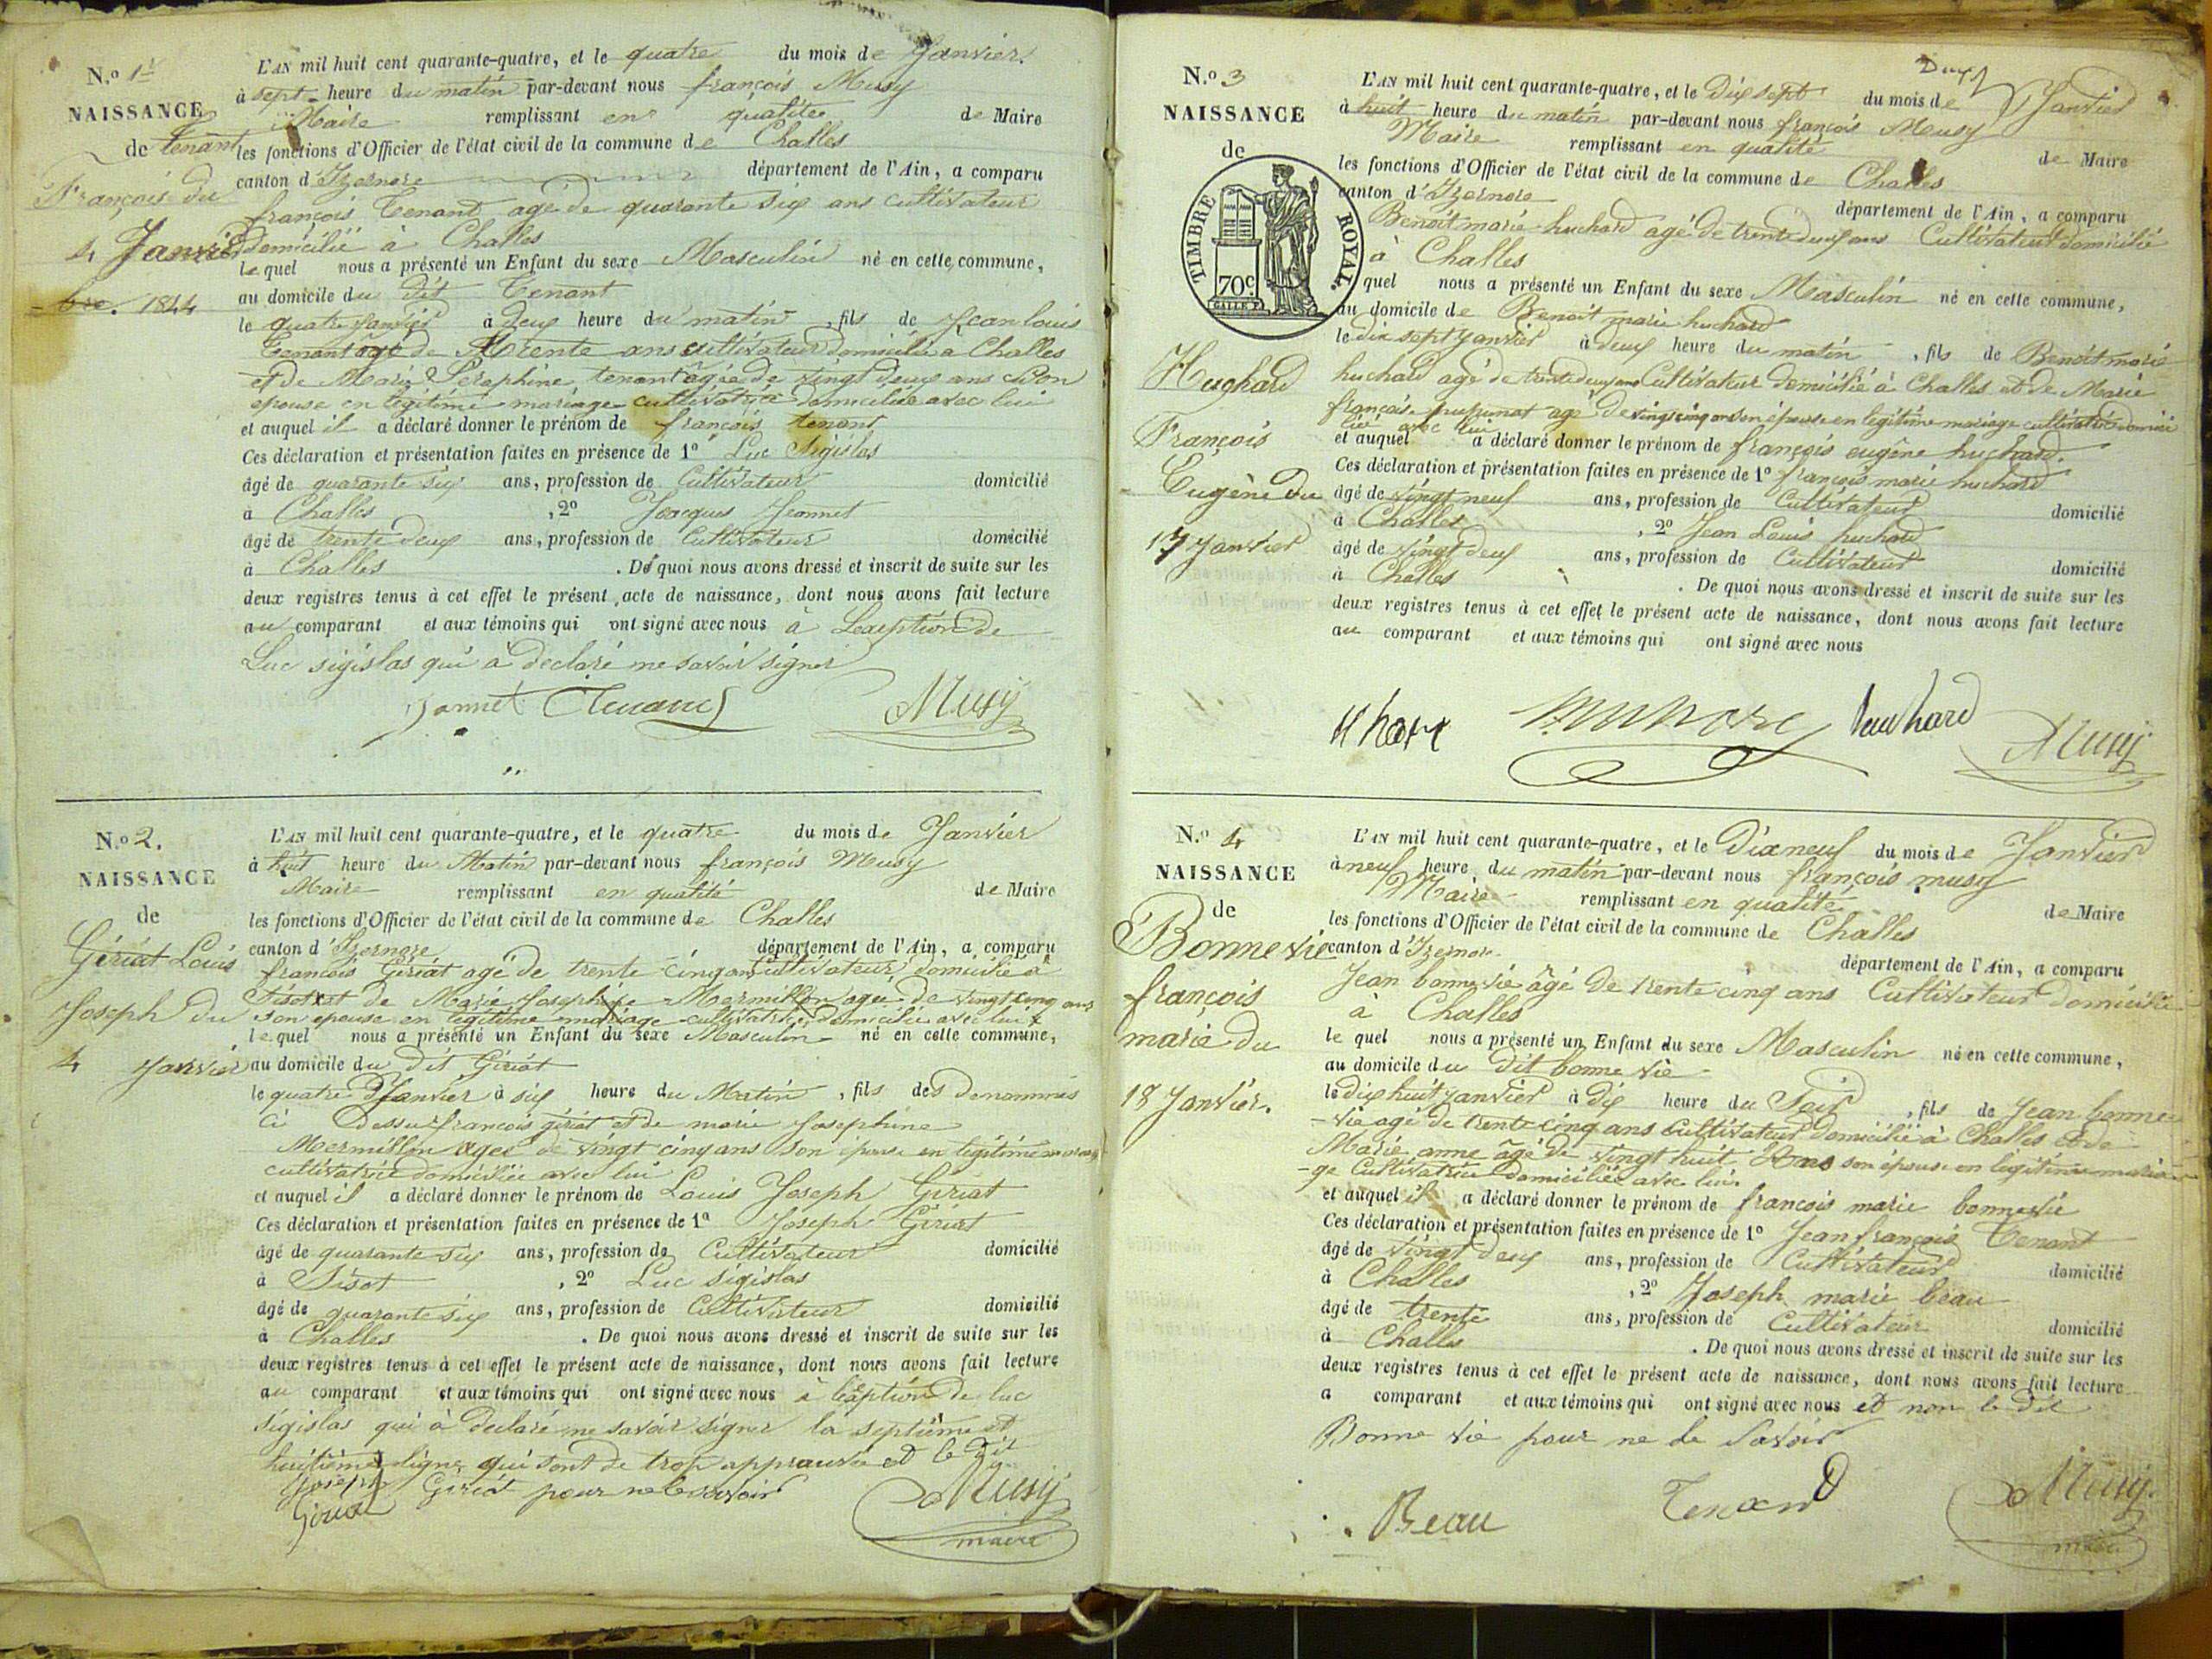 N.º 1er
NAISSANCE
de tenant
François du
4 Janvier
bre. 1844
L'AN mil huit cent quarante-quatre, et le quatre du mois de Janvier.
à sept heure du matin par-devant nous françois Musy
Maire remplissant en qualité de Maire
les fonctions d'Officier de l'état civil de la commune de Challes
canton d'Izernore département de l'Ain, a comparu
françois Tenant agé de quarante six ans cultivateur
domicilié à Challes
le quel nous a présenté un Enfant du sexe Masculin né en cette commune,
au domicile du dit Tenant
le quatre janvier à deux heure du matin, fils de Jean louis
Tenant agé de trente ans cultivateur domicilié à Challes
et de Marie Séraphine tenant agée de vingt deux ans son
épouse en légitime mariage cultivatrice domiciliée avec lui
et auquel il a déclaré donner le prénom de françois tenant
Ces déclaration et présentation faites en présence de 1º Luc Sigislas
âgé de quarante six ans, profession de Cultivateur domicilié
à Challes, 2º Jacques Jeannet
âgé de trente deux ans, profession de Cultivateur domicilié
à Challes. De quoi nous avons dressé et inscrit de suite sur les
deux registres tenus à cet effet le présent acte de naissance, dont nous avons fait lecture
au comparant et aux témoins qui ont signé avec nous à Lexeption de
Luc sigislas qui à déclaré ne savoir signer
Jannet Tenant Musy
N.º 2.
NAISSANCE
de
Giriat Louis
Joseph du
4 janvier
L'AN mil huit cent quarante-quatre, et le quatre du mois de Janvier
à huit heure du Matin par-devant nous françois Musy
Maire remplissant en qualité de Maire
les fonctions d'Officier de l'état civil de la commune de Challes
canton d'Izernore département de l'Ain, a comparu
françois Giriat agé de trente cinq ans Cultivateur domicilié à
Tisot et de Marie Josephine Mermillon agée de vingt cinq ans
son epouse en legitime mariage cultivatrice domicilié avec lui
le quel nous a présenté un Enfant du sexe Masculin né en cette commune,
au domicile du dit Giriat
le quatre Janvier à six heure du Matin, fils des denommés
ci dessu françois giriat et de marie Josephine
Mermillon agee de vingt cinq ans son épouse en légitime mariage
cultivatrice domiciliée avec lui
et auquel il a déclaré donner le prénom de Louis Joseph Giriat
Ces déclaration et présentation faites en présence de 1º Joseph Giriat
âgé de quarante six ans, profession de Cultivateur domicilié
à Tisot, 2º Luc sigislas
âgé de quarante six ans, profession de Cultivateur domicilié
à Challes. De quoi nous avons dressé et inscrit de suite sur les
deux registres tenus à cet effet le présent acte de naissance, dont nous avons fait lecture
au comparant et aux témoins qui ont signé avec nous à léxption de luc
sigislas qui à déclaré ne savoir signer la septième et
huitième ligne qui sont de trop approuvée et le dit
Joseph Giriat pour ne le savoir
Giriat Musy
maire
N.º 3
NAISSANCE
de
TIMBRE ROYAL.
70c
Hughard
François
Eugène du
17 Janvier
L'AN mil huit cent quarante-quatre, et le Dix sept du mois de Janvier
à huit heure du matin par-devant nous françois Musy
Maire remplissant en qualité de Maire
les fonctions d'Officier de l'état civil de la commune de Challes
canton d'Izernore département de l'Ain, a comparu
Benoit marie huchard agé de trente deux ans Cultivateur domicilié
à Challes
quel nous a présenté un Enfant du sexe Masculin né en cette commune,
au domicile de Benoit marie huchard
le dix sept janvier à deux heure du matin, fils de Benoit marie
huchard agé de trente deux ans Cultivateur domicilié à Challes et de Marie
françoise agé de vingt cinq ans son épouse en legitime mariage cultivatrice domici
lié avec lui
et auquel a déclaré donner le prénom de françois eugêne huchard.
Ces déclaration et présentation faites en présence de 1º françois marie huchard
âgé de vingt neuf ans, profession de Cultivateur domicilié
à Challes, 2º Jean Louis huchard
âgé de vingt deux ans, profession de Cultivateur domicilié
à Challes. De quoi nous avons dressé et inscrit de suite sur les
deux registres tenus à cet effet le présent acte de naissance, dont nous avons fait lecture
au comparant et aux témoins qui ont signé avec nous
huchard Musy
N.º 4
NAISSANCE
de
Bonnevie
françois
marie du
18 Janvier.
L'AN mil huit cent quarante-quatre, et le Dix neuf du mois de Janvier
à neuf heure du matin par-devant nous françois musy
Maire remplissant en qualité de Maire
les fonctions d'Officier de l'état civil de la commune de Challes
canton d'Izernore département de l'Ain, a comparu
Jean bonnevie âgé de trente cinq ans Cultivateur domicilié
à Challes
le quel nous a présenté un Enfant du sexe Masculin né en cette commune,
au domicile du dit bonne vie
le dix huit janvier à dix heure du Soir, fils de Jean bonne
-vie agé de trente cinq ans Cultivateur domicilié à Challes et de
Marie anne âgé de vingt huit ans son épouse en légitime maria-
-ge Cultivatrice domiciliée avec lui
et auquel il a déclaré donner le prénom de françois marie bonnevie
Ces déclaration et présentation faites en présence de 1º Jean françois Tenant
âgé de vingt deux ans, profession de Cultivateur domicilié
à Challes, 2º Joseph marie beau
âgé de trente ans, profession de Cultivateur domicilié
à Challes. De quoi nous avons dressé et inscrit de suite sur les
deux registres tenus à cet effet le présent acte de naissance, dont nous avons fait lecture
a comparant et aux témoins qui ont signé avec nous et non le dit
Bonne vie pour ne le Savoir
Beau Tenand Musy
maire